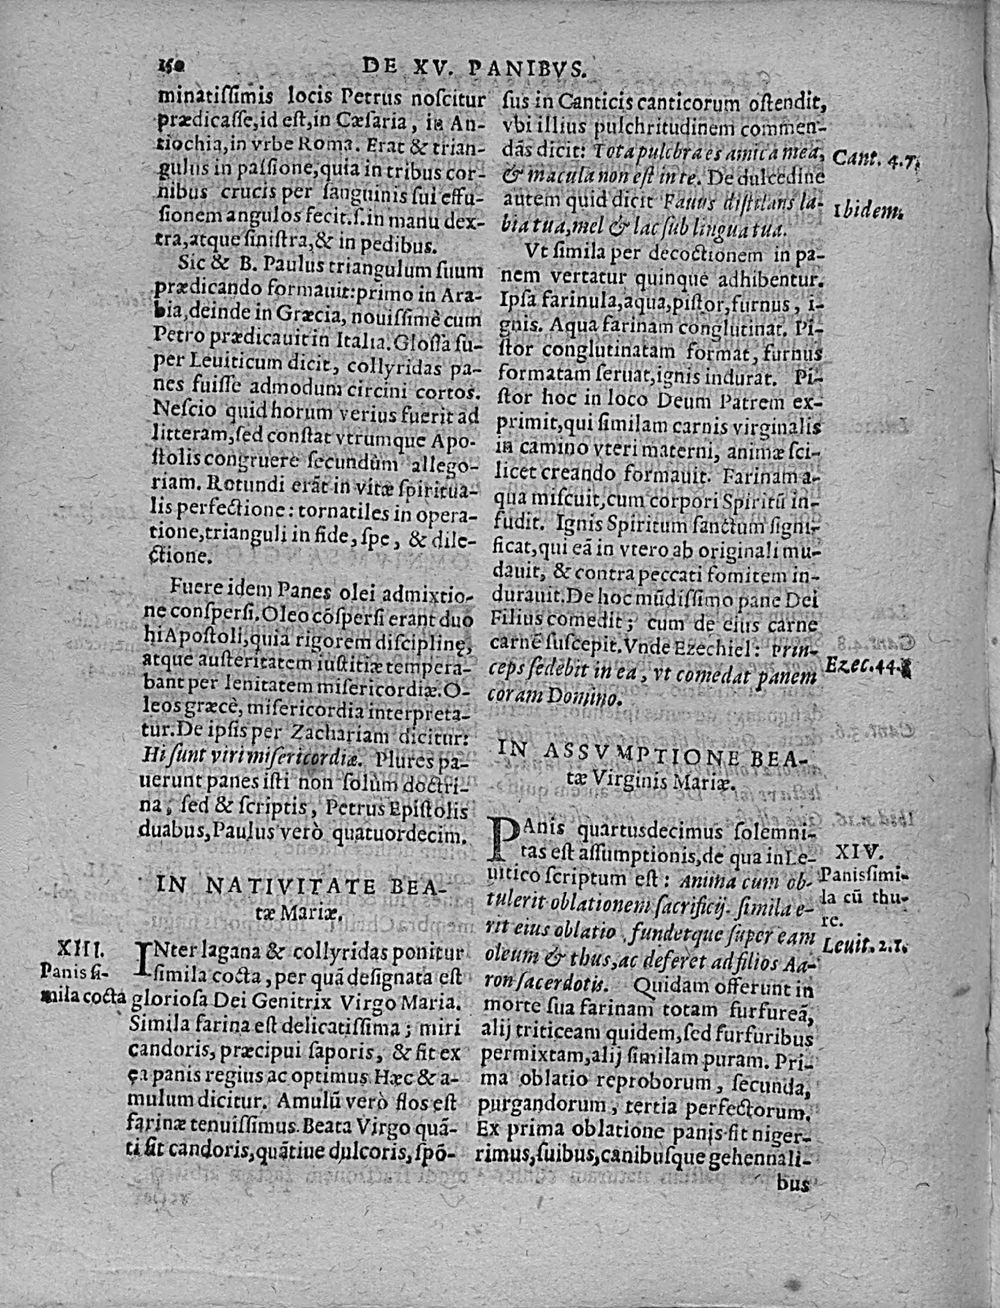 150
DE XV. PANIBVS.
minatissimis locis Petrus noscitur
prædicasse, id est, in Cæsaria, in An-
tiochia, in vrbe Roma. Erat & trian-
gulus in passione, quia in tribus cor-
nibus crucis per sanguinis sui effu-
sionem angulos fecit. s. in manu dex-
tra, atque sinistra, & in pedibus.
Sic & B. Paulus triangulum suum
prædicando formauit: primo in Ara-
bia, deinde in Græcia, nouissimè cum
Petro prædicauit in Italia. Glossa su-
per Leuiticum dicit, collyridas pa-
nes fuisse admodum circini cortos.
Nescio quid horum verius fuerit ad
litteram, sed constat vtrumque Apo-
stolis congruere secundùm allego-
riam. Rotundi erāt in vitæ spiritua-
lis perfectione: tornatiles in opera-
tione, trianguli in fide, spe, & dile-
ctione.
Fuere idem Panes olei admixtio-
ne conspersi. Oleo cōspersi erant duo
hi Apostoli, quia rigorem disciplinę,
atque austeritatem iustitiæ tempera-
bant per lenitatem misericordiæ. O-
leos græcè, misericordia interpreta-
tur. De ipsis per Zachariam dicitur:
Hi sunt viri misericordiæ. Plures pa-
uerunt panes isti non solùm doctri-
na, sed & scriptis, Petrus Epistolis
duabus, Paulus verò quatuordecim.
IN NATIVITATE BEA-
tæ Mariæ.
XIII.
Panis si-
mila cocta
INter lagana & collyridas ponitur
simila cocta, per quā designata est
gloriosa Dei Genitrix Virgo Maria.
Simila farina est delicatissima; miri
candoris, præcipui saporis, & fit ex
ea panis regius ac optimus. Hæc & a-
mulum dicitur. Amulū verò flos est
farinæ tenuissimus. Beata Virgo quā-
ti sit candoris, quātiue dulcoris, spō-
sus in Canticis canticorum ostendit,
vbi illius pulchritudinem commen-
dās dicit: Tota pulchra es amica mea,
& macula non est in te. De dulcedine
autem quid dicit Fauus distilans la-
bia tua, mel & lac sub lingua tua.
Cant. 4.7.
Ibidem.
Vt simila per decoctionem in pa-
nem vertatur quinque adhibentur.
Ipsa farinula, aqua, pistor, furnus, i-
gnis. Aqua farinam conglutinat. Pi-
stor conglutinatam format, furnus
formatam seruat, ignis indurat. Pi-
stor hoc in loco Deum Patrem ex-
primit, qui similam carnis virginalis
in camino vteri materni, animæ sci-
licet creando formauit. Farinam a-
qua miscuit, cum corpori Spiritū in-
fudit. Ignis Spiritum sanctum signi-
ficat, qui eā in vtero ab originali mu-
dauit, & contra peccati fomitem in-
durauit. De hoc mūdissimo pane Dei
Filius comedit; cum de eius carne
carnē suscepit. Vnde Ezechiel: Prin-
ceps sedebit in ea, vt comedat panem
coram Domino.
Ezec. 44.
IN ASSVMPTIONE BEA-
tæ Virginis Mariæ.
PAnis quartusdecimus solemni-
tas est assumptionis, de qua in Le-
uitico scriptum est: Anima cum ob-
tulerit oblationem sacrificij. simila e-
rit eius oblatio fundetque super eam
oleum & thus, ac deferet ad filios Aa-
ron sacerdotis. Quidam offerunt in
morte sua farinam totam furfureā,
alij triticeam quidem, sed furfuribus
permixtam, alij similam puram. Pri-
ma oblatio reproborum, secunda,
purgandorum, tertia perfectorum.
Ex prima oblatione panis fit niger-
rimus, suibus, canibusque gehennali-
bus
XIV.
Panis simi-
la cū thu-
re.
Leuit. 2.1.